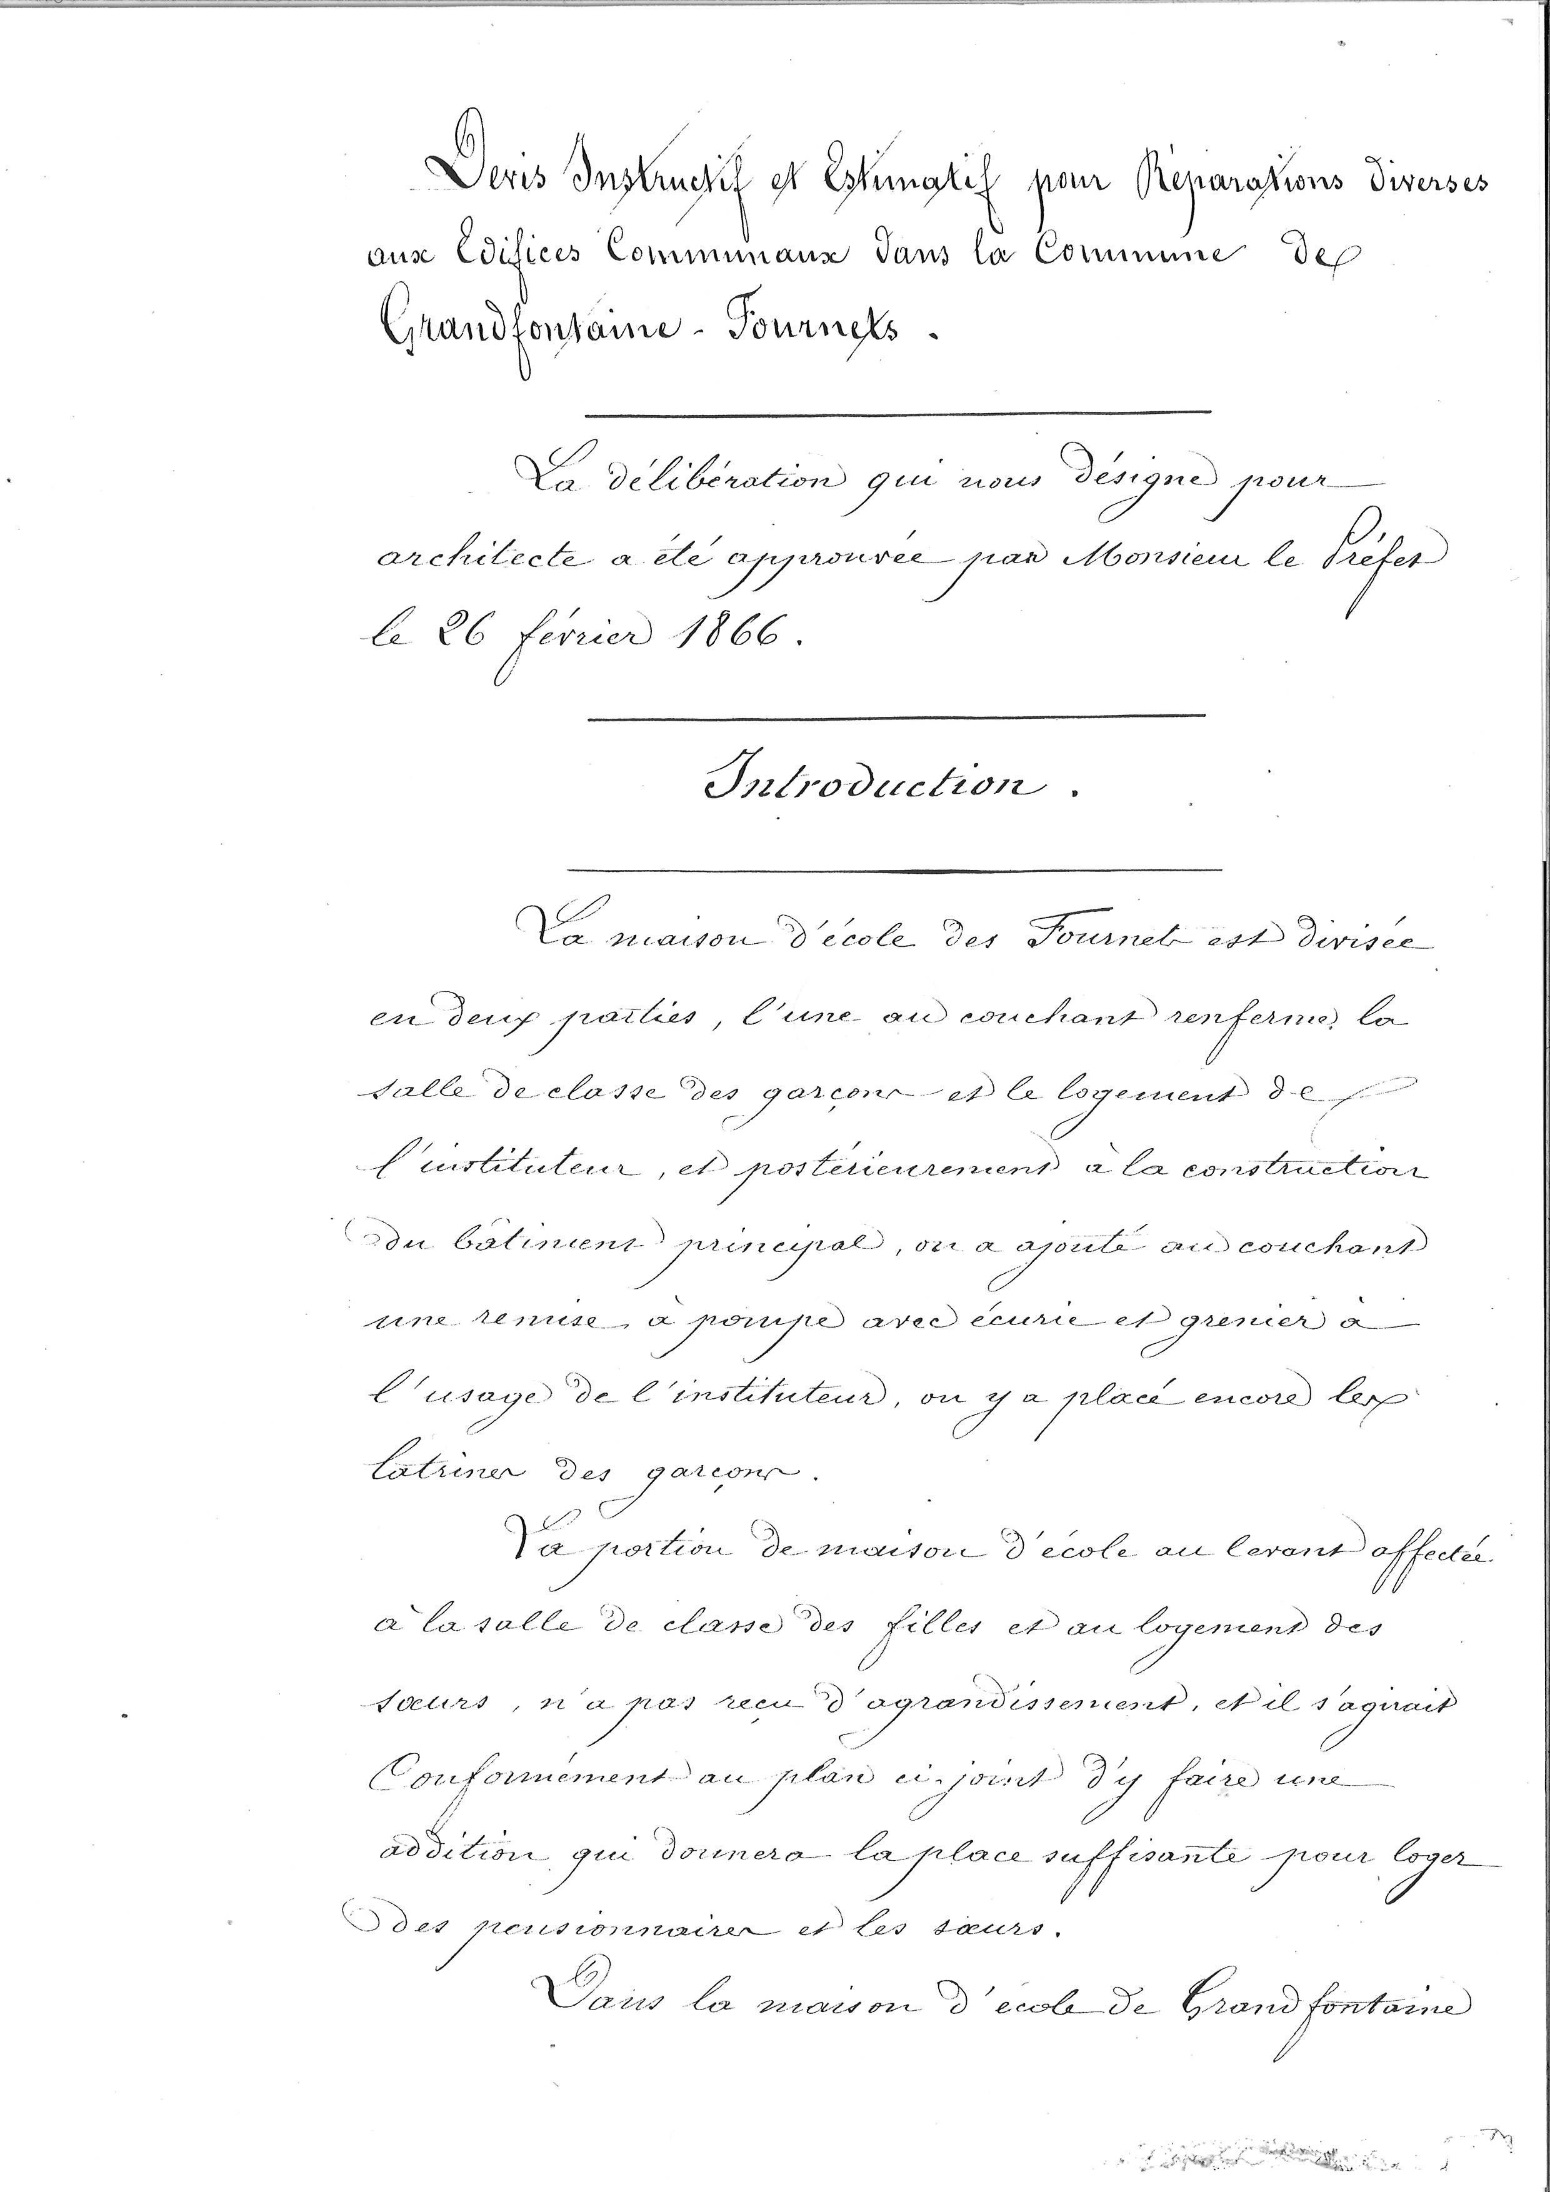 Devis Instructif et Estimatif pour Réparations Diverses
aux Edifices Communaux dans la Commune de
Grandfontaine - Fournets .
La délibération qui nous désigne pour
architecte a été approuvée par Monsieur le Préfet
le 26 février 1866 .
Introduction .
La maison d'école des Fournets est divisée
en deux parties , l'une au couchant renferme la
salle de classe des garçons et le logement de
l'instituteur , et postérieurement à la construction
du bâtiment principal , on a ajouté au couchant
une remise à pompe avec écurie et grenier à
l'usage de l'instituteur , on y a placé encore les
latrines des garçons .
La portion de maison d'école au levant affectée
à la salle de classe des filles et au logement des
sœurs , n'a pas reçu d'agrandissement , et il s'agirait
Conformément au plan ci-joint d'y faire une
addition qui donnera la place suffisante pour loger
des pensionnaires et les sœurs .
Dans la maison d'école de Grandfontaine